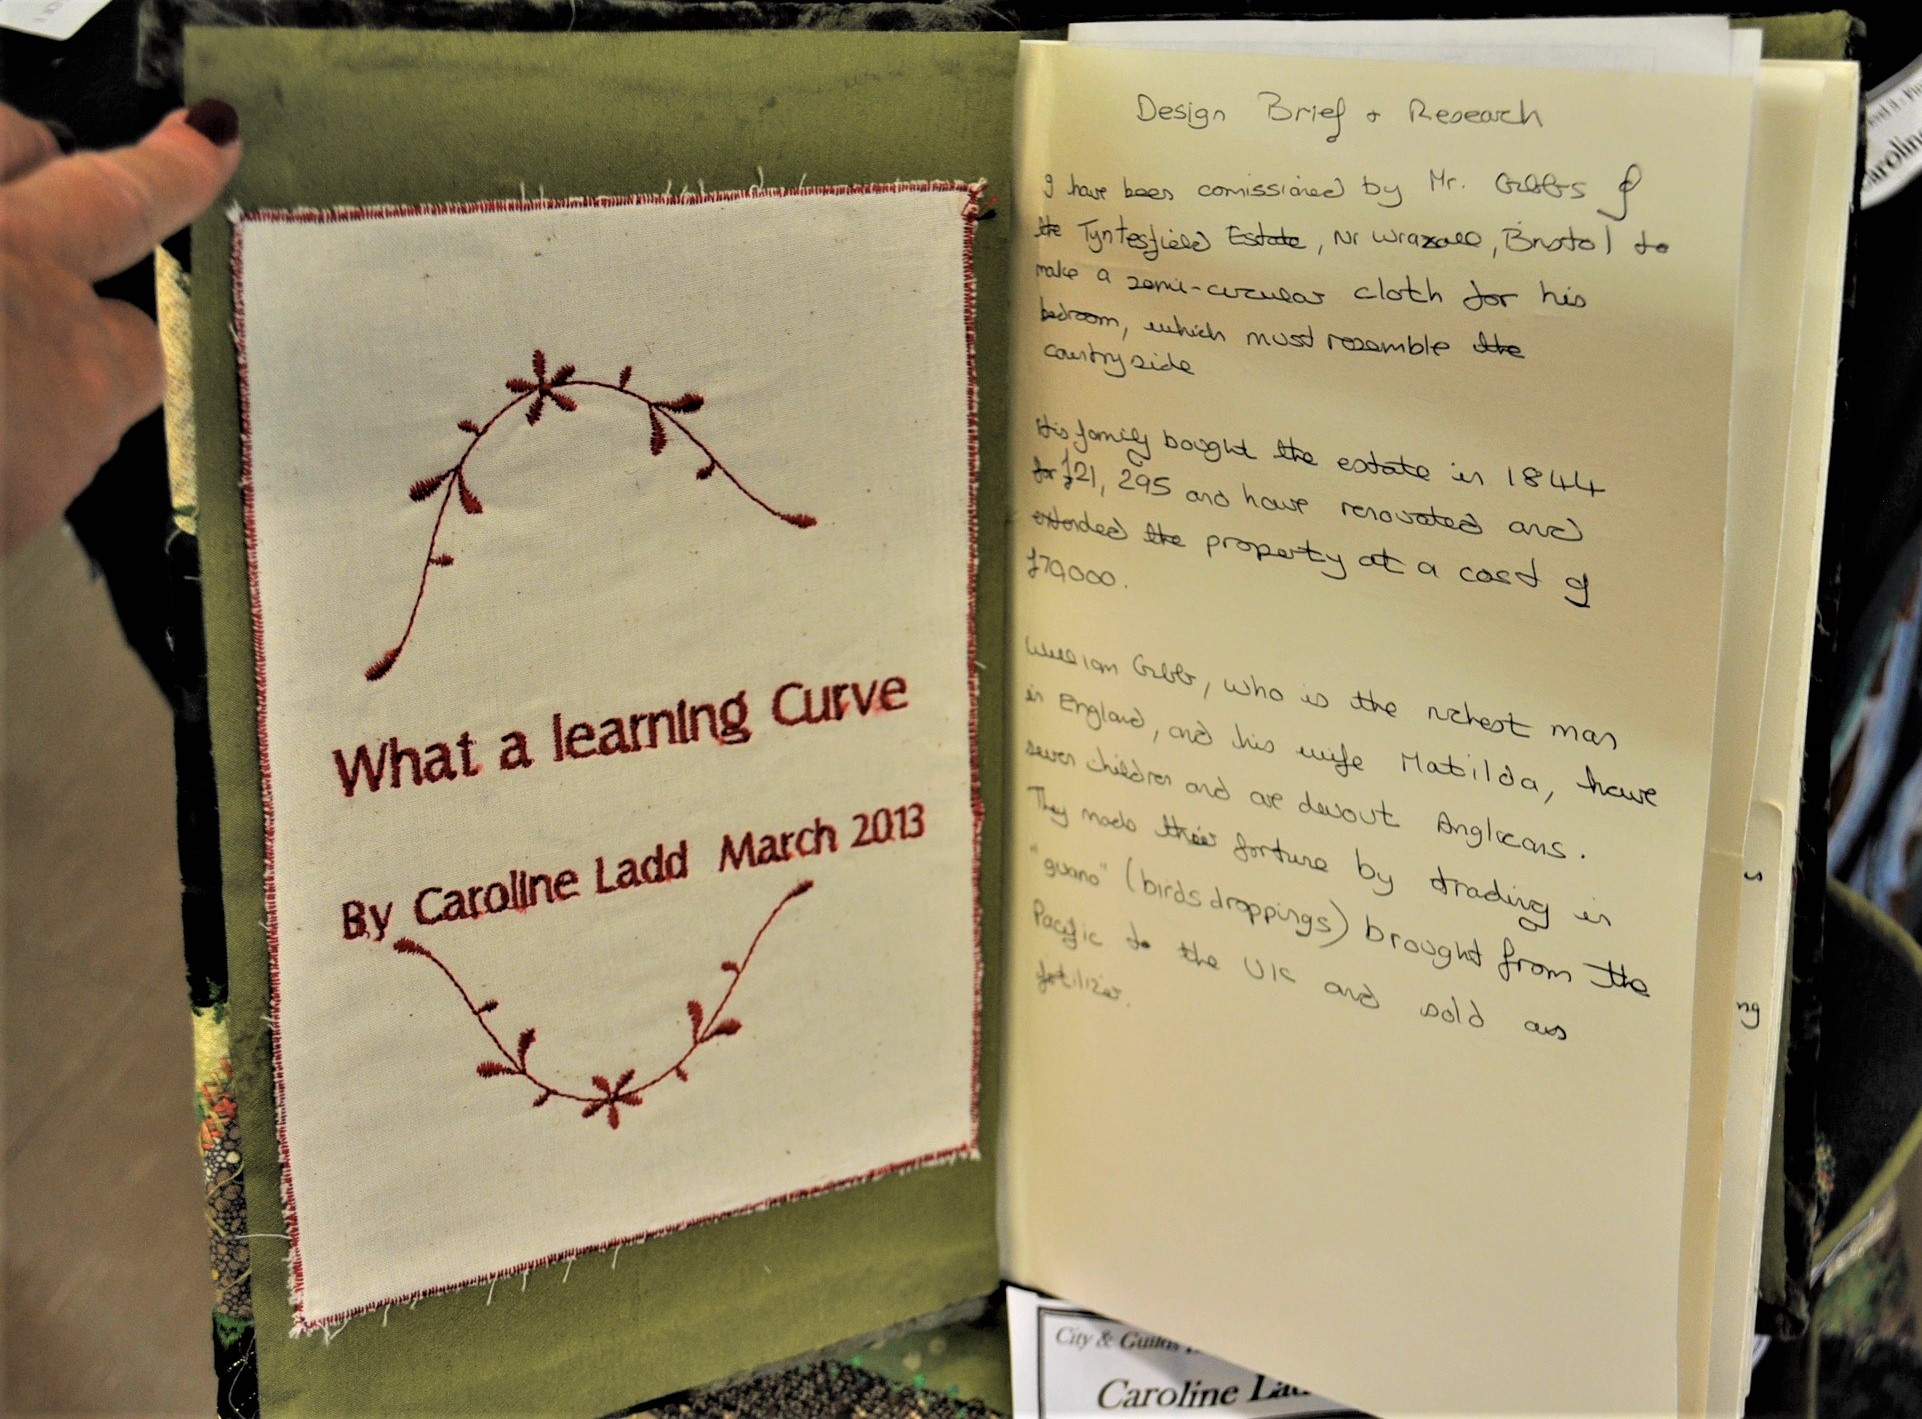 What a learning Curve
By Caroline Ladd March 2013
Design Brief + Research
I have been comissioned by Mr. Gibbs of
the Tyntesfield Estate, Nr Wraxall, Bristol to
make a semi-circular cloth for his
bedroom, which must resemble the
countryside
His family bought the estate in 1844
for £21,295 and have renovated and
extended the property at a cost of
£70,000.
William Gibbs, who is the richest man
in England, and his wife Matilda, have
seven children and are devout Anglicans.
They made their fortune by trading in
"guano" (birds droppings) brought from the
Pacific to the UK and sold as
fertilizer.
s
ng
City & Guilds
Caroline